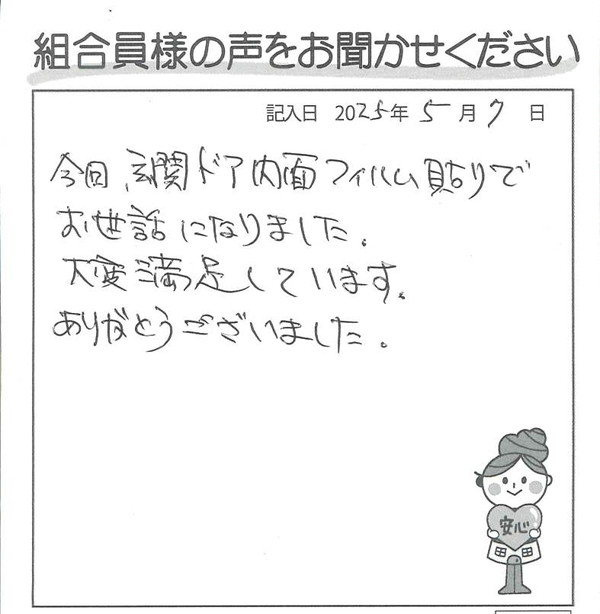 組合員様の声をお聞かせください
記入日 2025年 5月 7日
今回、玄関ドア内面フィルム貼りで
お世話になりました。
大変満足しています。
ありがとうございました。
安心